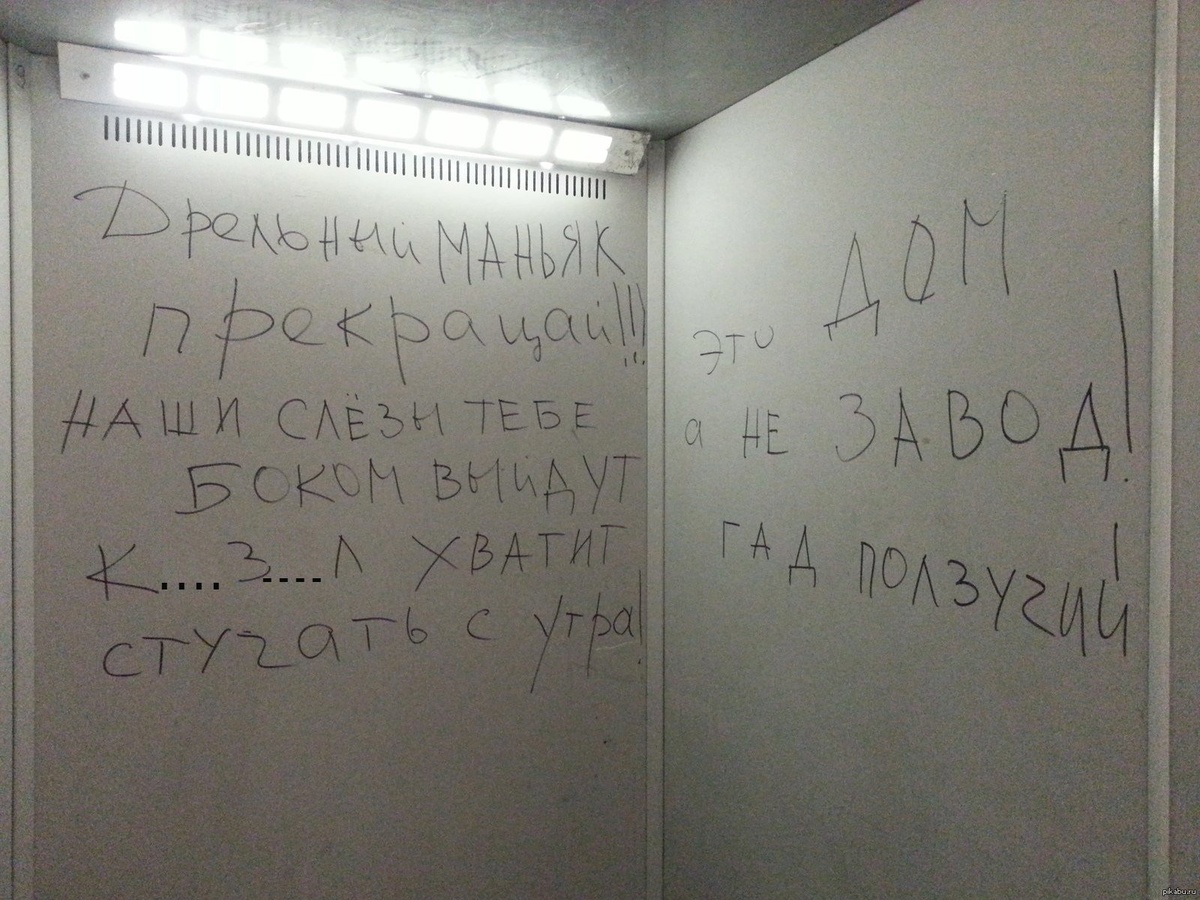 Дрельный МАНЬЯК
прекращай!!!
НАШИ СЛЁЗЫ ТЕБЕ
БОКОМ ВЫЙДУТ
К....З----Л ХВАТИТ
стучать с утра!
ДОМ
это
а НЕ ЗАВОД!
ГАД ПОЛЗУЧИЙ!
pikabu.ru